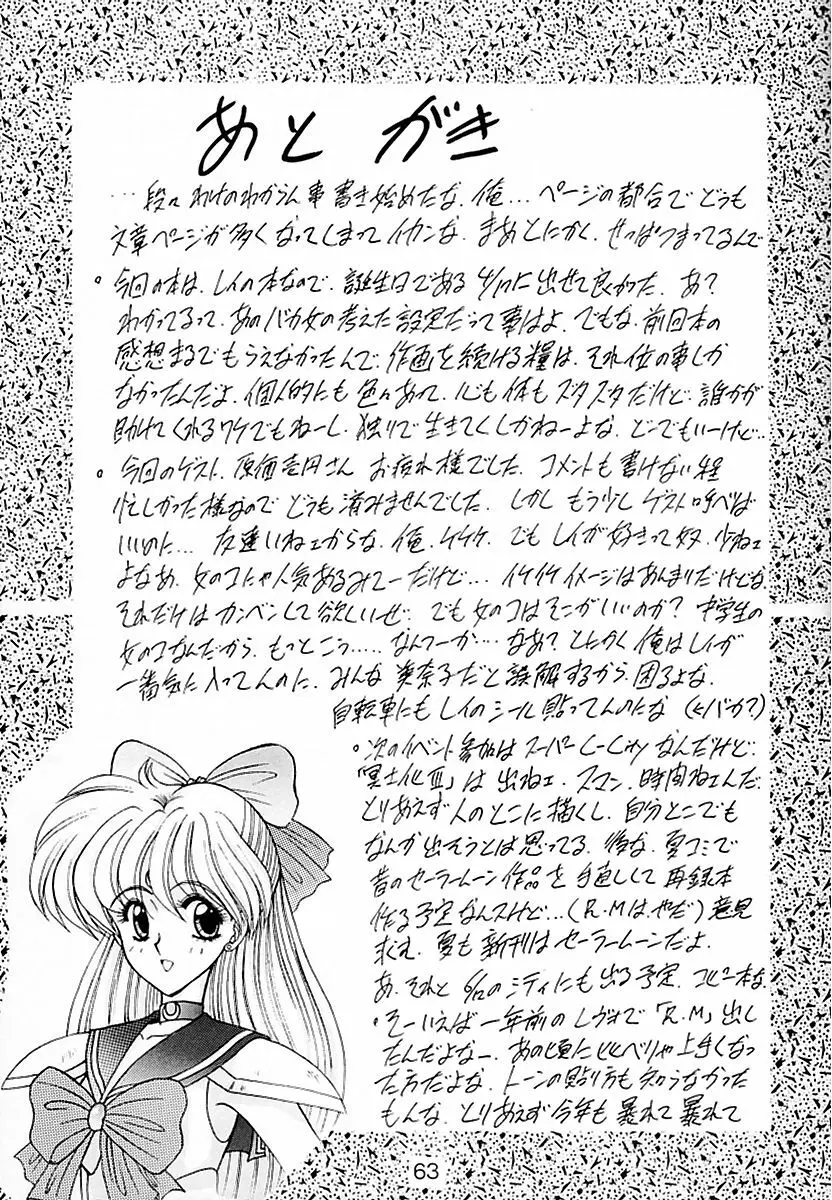 あとがき
…段々わけのわからん事書き始めたな、俺…ページの都合でどうも
文章ページが多くなってしまってイカンな。まあとにかく、せっぱつまってるんで
。今回の本は、レイの本なので、誕生日である4/17に出せて良かった。あ?
わかってるって、あのバカ女の考えた設定だって事はよ。でもな、前回本の
感想まるでもらえなかったんで、作画を続ける糧は、それ位の事しか
なかったんだよ。個人的にも色々あって、心も体もズタズタだけど、誰かが
助けてくれるワケでもねーし、独りで生きてくしかねーよな。どーでもいーけど…
。今回のゲスト、原価壱円さん お疲れ様でした。コメントも書けない程
忙しかった様なので どうも済みませんでした。しかし もう少しゲスト呼べば
いいのに… 友達いねェからな、俺、ケケケ。でも レイが好きって奴、少ねェ
よなあ。女のコにゃ人気あるみてーだけど… イケイケイメージはあんまりだけどな
それだけは カンベンして欲しいぜ。でも女のコはそこがいいのか? 中学生の
女のコなんだから、もっとこう……なんつーか…なあ? とにかく 俺はレイが
一番気に入ってんのに、みんな 美奈子だと誤解するから、困るよな。
自転車にも レイのシール貼ってんのにな (←バカ?)
・次のイベント参加は スーパーC-Cityなんだけど、
「冥土化III」は 出ねェ。スマン、時間ねェんだ。
とりあえず人のとこに描くし、自分とこでも
なんか出そうとは思ってる。後な、夏コミで
昔のセーラームーン作品を 手直しして 再録本
作る予定なんスけど…(R.Mはやだ) 意見
求む。夏も新刊はセーラームーンだよ。
あ、それと 6/10のシティにも出る予定。コピー本な
・そーいえば 一年前のレヴォで「R.M」出し
たんだよなー。あの頃に比べりゃ上手くなっ
た方だよな。トーンの貼り方も知らなかった
もんな。とりあえず今年も 暴れて暴れて
63